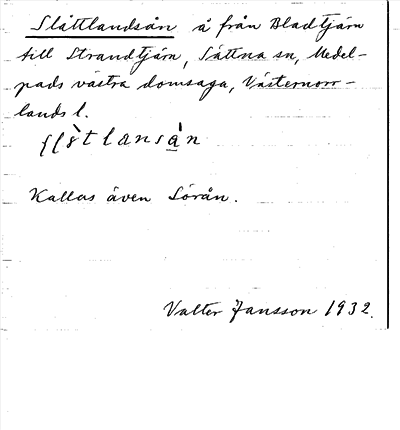 Slåttlandsån å från Bladtjärn
till Strandtjärn, Sättna sn, Medel-
pads västra domsaga, Västernorr-
lands l.
Kallas även Sörån.
Valter Jansson 1932.